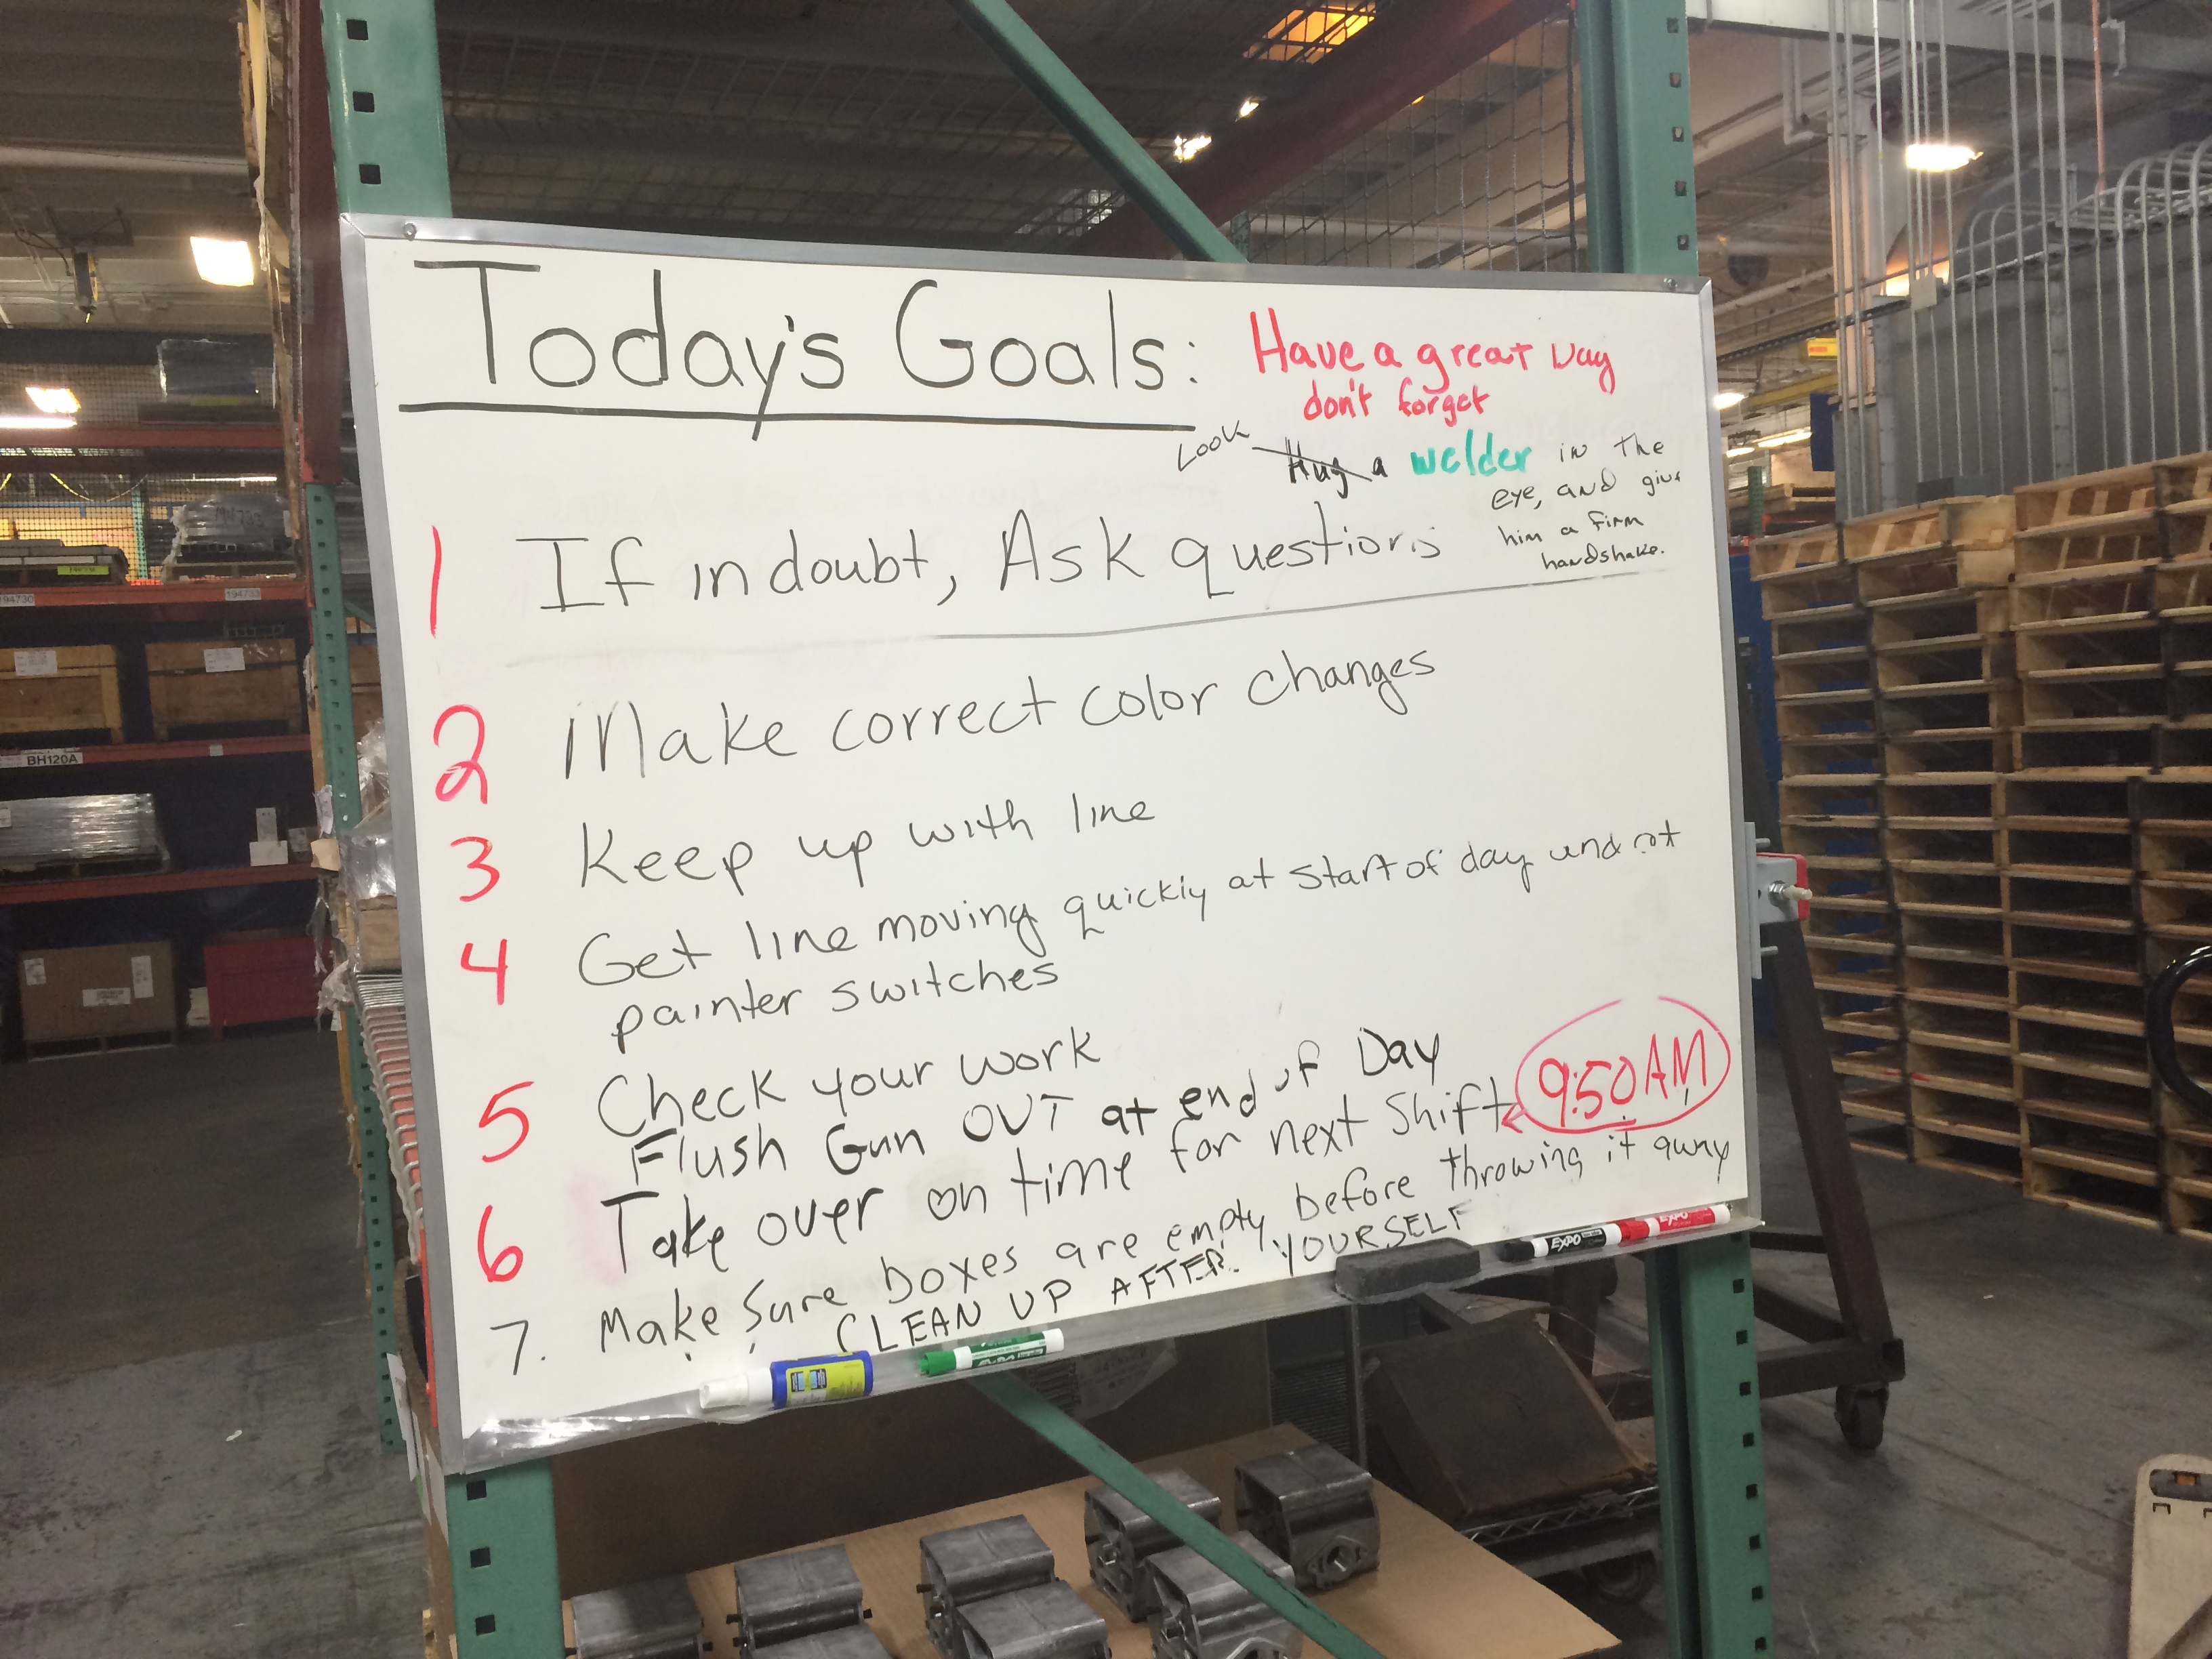 Today's Goals:
Have a great Day
don't forget
Look Hug a welder in the
eye, and give
him a firm
handshake.
1 If in doubt, Ask questions
2 Make correct color changes
3 Keep up with line
4 Get line moving quickly at start of day and not
painter switches
5 Check your work
Flush Gun OUT at end of Day
6 Take over on time for next Shift 9:50 AM
7. Make sure boxes are empty before throwing it away
CLEAN UP AFTER YOURSELF
EXPO
EXPO
EXPO
BH120A
194730
194733